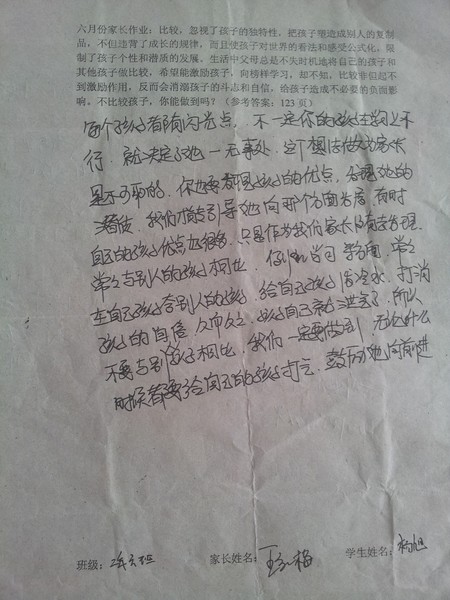 六月份家长作业：比较，忽视了孩子的独特性，把孩子塑造成别人的复制
品，不但违背了成长的规律，而且使孩子对世界的看法和感受公式化，限
制了孩子个性和潜质的发展。生活中父母总是不失时机地将自己的孩子和
其他孩子做比较，希望能激励孩子，向榜样学习，却不知，比较非但起不
到激励作用，反而会消磨孩子的斗志和自信，给孩子造成不必要的负面影
响。不比较孩子，你能做到吗？（参考答案：123页）
每个孩子都有闪光点，不一定你的孩子在学习上不
行，就决定了他一无事处，这个想法做为家长
是不可取的，你也要看到孩子的优点，发现他的
我们指引导他向那个方面发展，有时
自己的孩子优点也很多，只是作为我们家长没有去发现
常常与别人的孩子相比，例如学习方面，常常
拿自己孩子夸别人的孩子，给自己孩子泼冷水，打消
孩子的自信，久而久之，孩子自己就没了，所以
不要与别孩子相比，我们一定要做到，无论什么
时候都要给自己的孩子打气，鼓励他向前进
班级：　家长姓名：王　梅　学生姓名：杨旭